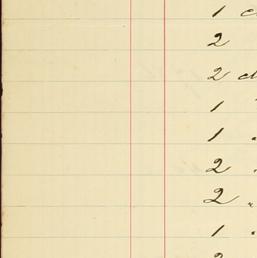 1
2
2
1
1 "
2 "
2 "
1 "
2